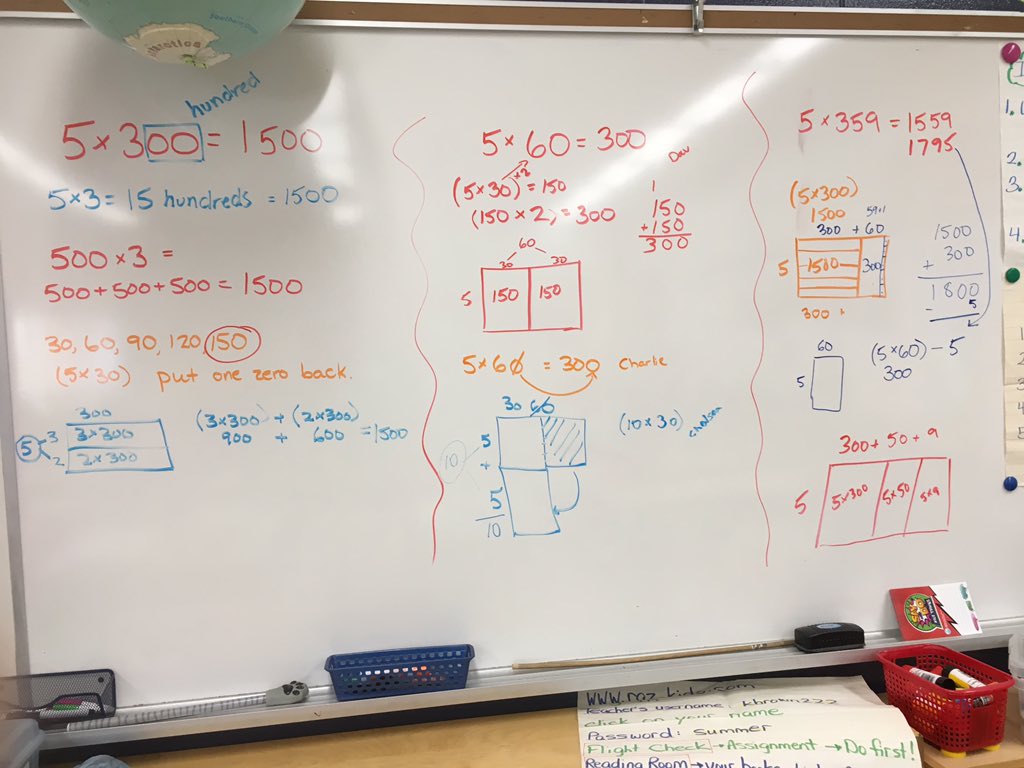 hundred
5 × 300 = 1500
5×3 = 15 hundreds = 1500
500 × 3 =
500 + 500 + 500 = 1500
30, 60, 90, 120, 150
(5×30) put one zero back.
300
5 3 3×300
2 2×300
(3×300) + (2×300)
900 + 600 = 1500
5 × 60 = 300
Dev
(5×30) ×2 = 150
(150 × 2) = 300
1
150
+150
300
60
30 30
5 150 150
5×60 = 300 Charlie
30 60
10 5
+
5
10
(10×30) Chelsea
5 × 359 = 1559
1795
(5×300)
1500 59+1
300 + 60
5 1500 300
300 +
1500
300
+
1800
- 5
60
5
(5×60) - 5
300
300 + 50 + 9
5 5×300 5×50 5×9
1.
2.
3.
4.
www.raz-kids.com
Teacher's username:
click on your name
Password: summer
Flight Check → Assignment → Do first!
Reading Room → your